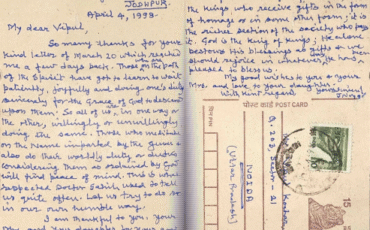 JODHPUR
April 4, 1993.
My dear Vipul,
So many thanks for your
kind letter of March 20 which reached
me a few days back. Those on the path
of the Spirit have got to learn to wait
patiently, joyfully and doing one's duty
sincerely for the Grace of God to descend
upon them. So all of us, in one way or
the other, willingly or unwillingly
doing the same. Those who meditate
on the Name imparted by the Guru &
also do their worldly duty or duties
considering them as ordained by God
will find peace of mind. This is what
respected Doctor Sahib used to tell
us quite often. Let us try to do so
in our own humble way.
I am thankful to you, your
the Kings who receive gifts in the form
of homage or in some other form; it is
the richer section of the society who pays
it. God is the King of Kings; He alone
bestows His blessings as gifts and we
should rejoice in whatever He has
pleased to bless us.
My good wishes to you & your
Mrs. and love to your daughter.
With kind regards
पोस्ट कार्ड POST CARD
Sector - 21
NOIDA
(Uttar Pradesh)
15